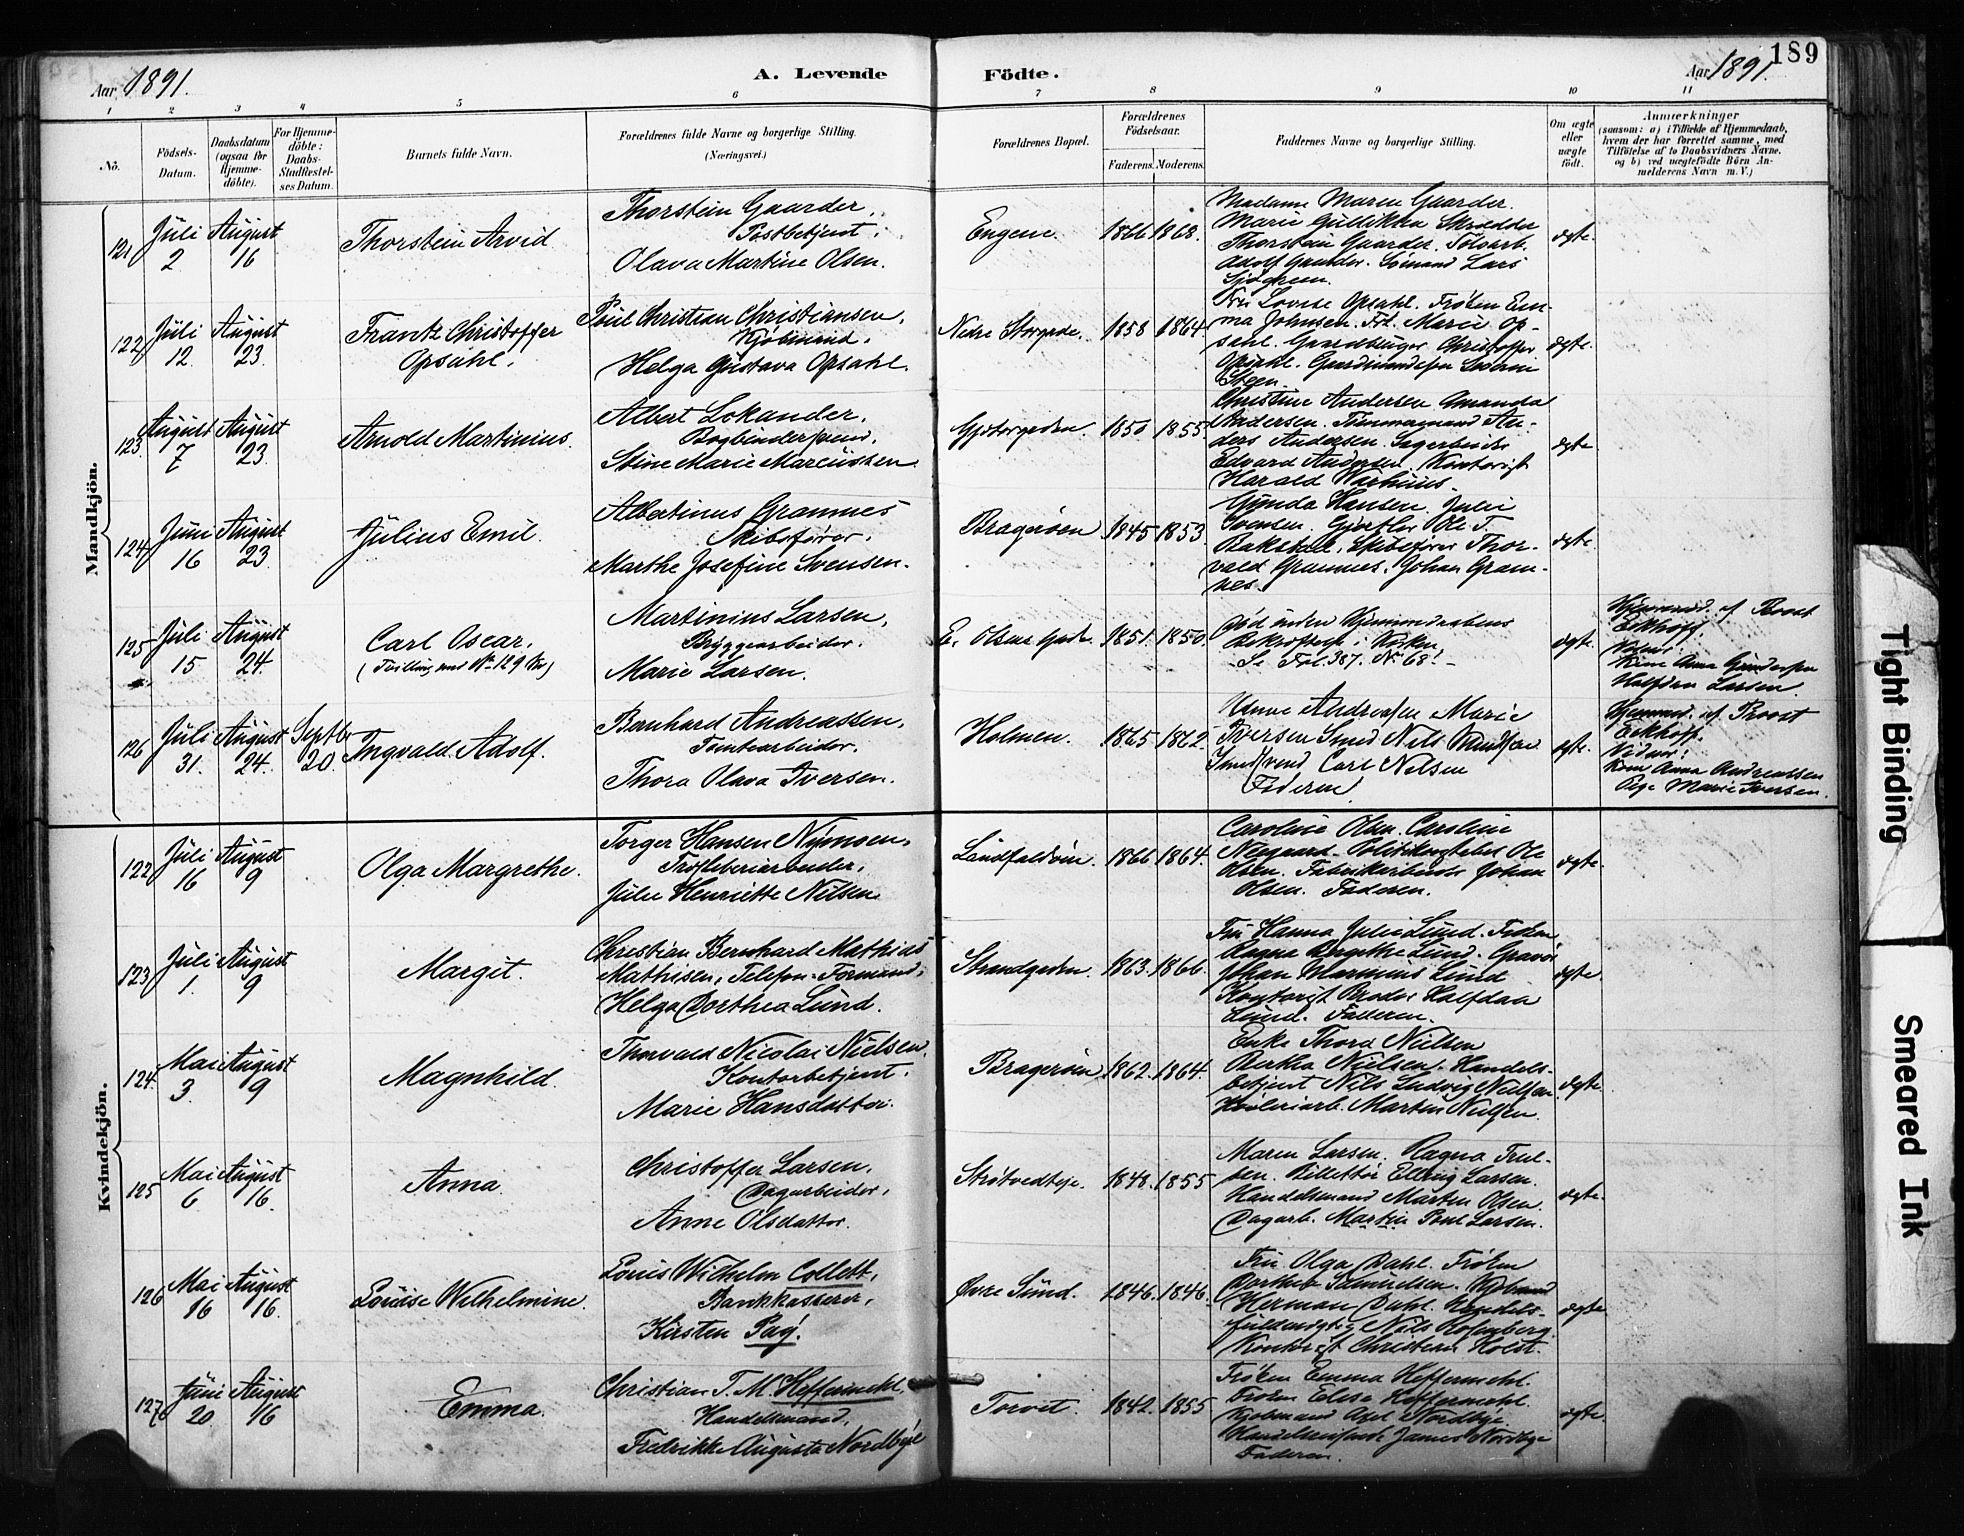 189
Aar 1891.
A. Levende Födte.
Aar 1891.
1 2 3 4 5 6 7 8 9 10 11
No.
Födsels-
Datum.
Daabsdatum
(ogsaa for
Hjemme-
döbte).
For Hjemme-
döbte:
Daabs-
Stadfæstel-
ses Datum.
Barnets fulde Navn.
Forældrenes fulde Navne og borgerlige Stilling.
(Næringsvei.)
Forældrenes Bopæl.
Forældrenes
Födselsaar.
Faderens. Moderens.
Faddernes Navne og borgerlige Stilling.
Om ægte
eller
uægte
født.
Anmærkninger
(saasom: a) i Tilfælde af Hjemmedaab,
hvem der har forrettet samme, med
Tilföielse af to Daabsvidners Navne,
og b) ved uægtefödte Börn An-
melderens Navn m. V.)
Mandkjön.
121 Juli 2 August 16
Thorstein Arvid
Thorstein Gaarder,
Postbetjent,
Olava Martine Olsen.
Engene. 1866 1868.
Madame Maren Gaarder.
Marie Guldikken Skrædder
Thorstein Gaarder. Toldarb.
Adolf Gaarder. Sömand Lars
Sjögreen.
ægte.
122 Juli 12. August 23.
Frantz Christoffer
Opsahl.
Poul Christian Christiansen,
Kjöbmand,
Helga Gustava Opsahl.
Nedre Storgade. 1858 1864
Fru Lovise Opsahl. Fröken Em-
ma Johnsen. Frk. Marie Op-
sahl. Gaardbruger Christoffer
Opsahl. Severin
Steen.
ægte.
123 August 7 August 23.
Arnold Martinius.
Albert Lokander,
Bogbindersvend,
Stine Marie Marcussen.
1850 1855
Christine Andersen Amanda
Andersen. Tömmermand An-
ders Andersen.
Edvard Andersen. Kontorist
Harald
ægte
124 Juni 16 August 23.
Julius Emil.
Albertinus Gramnes
Skibsförer,
Marthe Josefine Svensen.
Bragerøen 1845 1853
Gunda Hansen, Julie
Svensen. Gjørtler Ole T.
Bakstad, Skibsförer Thor-
vald Gramnes, Johan Gram-
nes.
ægte
125 Juli 15 August 24.
Carl Oscar,
(Tvilling med No 129 Kv)
Martinius Larsen,
Bryggearbeider.
Marie Larsen.
E. Olsens Gaard. 1851. 1850
Död inden Hjemmedaabens
Bekræftelse i Kirken.
Se Fol. 387. No 68.
ægte.
Hjemmed. af Provst
Eckhoff.
Vidner:
Kone Anna Gundersen
Halfdan Larsen.
126 Juli 31. August 24. Septbr 20.
Ingvald Adolf.
Bernhard Andreassen,
Tomtearbeider.
Thora Olava Iversen.
Holmen. 1865 1862
Andreasen Marie
Iversen Smed Nils Knudsen
Smedsvend Carl Nilsen
Faderen.
ægte.
Hjemmed. af Provst
Eckhoff.
Vidner:
Kone Anna Andreassen
Pige Marie Iversen.
Kvindekjön.
122 Juli 16 August 9
Olga Margrethe.
Torger Hansen Nymoen,
Træsleberiarbeider,
Julie Henriette Nilsen.
Landfaldøen. 1866 1864.
Caroline Olsen. Caroline
Neegaard. Politikonstabel Ole
Olsen. Fabrikarbeider Johan
Olsen. Faderen.
ægte.
123 Juli 1. August 9
Margit.
Christian Bernhard Mathias
Mathisen, Telefon-Formand,
Helga Dorthea Lund.
Strandgaden. 1863. 1866.
Fru Hanna Julie Lund. Frøken
Ragna Bergithe Lund. Gravør
Johan Marinius Lund
Kontorist Peder Halfdan
Lund. Faderen.
ægte.
124. Mai 3 August 9
Magnhild.
Thorvald Nicolai Nielsen,
Kontorbetjent,
Marie Hansdatter.
Bragerøen 1862. 1864.
Enke Thora Nielsen
Bertha Nielsen. Handels-
betjent Nils Ludvig Nielsen
Høvleriarb. Martin Nielsen.
ægte.
125 Mai 6 August 16.
Anna.
Christoffer Larsen,
Dagarbeider,
Anne Olsdatter.
Strøtvedteje. 1848. 1855
Maren Larsen. Ragna Trul-
sen. Billettør Edling Larsen.
Handelsmand Marten Olsen.
Dagarb. Martin Poul Larsen.
ægte.
126 Mai 16 August 16.
Louise Wilhelmine.
Louis Wilhelm Collett,
Bankkasserer,
Kirsten Pay.
Øvre Sund. 1846. 1846.
Fru Olga Dahl. Fröken
Dorthea Samuelsen. Kjöbmand
Herman Dahl. Handels-
fuldmægtig Nils Rosenberg.
Kontorist Christian Holst.
ægte
127 Juni 20 August 16
Emma.
Christian T. M. Heffermehl,
Handelsmand,
Fredrikke Augusta Nordbye
Torvet. 1842. 1855
Fröken Emma Heffermehl.
Fröken Elisa Heffermehl.
Kjöbmand Axel Nordbye.
James Nordbye
Faderen.
ægte.
Tight Binding
Smeared Ink